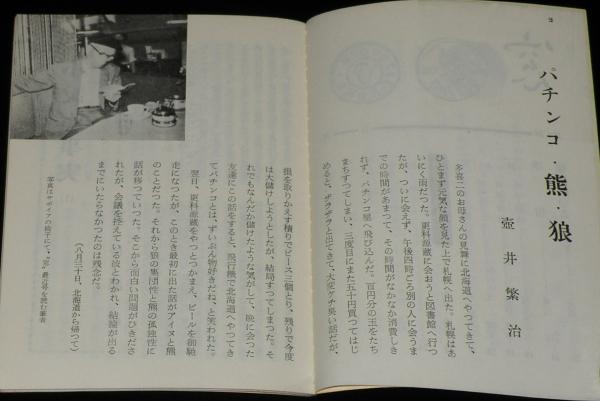 パチンコ・熊・狼
壺井繁治
多喜二のお母さんの見舞に北海道へやつてきて、
ひとまず元気な顔を見た上で札幌へ出た。札幌はあ
いにく雨だつた。更科源蔵に会おうと図書館へ行つ
たが、ついに会えず、午後四時ごろ別の人に会うま
での時間があまつて、その時間がなかなか消費しき
れず、パチンコ屋へ飛び込んだ。百円分の玉をたち
まちすつてしまい、三度目にまた五十円買つてはじ
めると、ザラザラと出てきて、大変ケチ臭い話だが、
損を取りかえす積りでピース三個とり、残りで今度
は大儲けしようとしたが、結局すつてしまつた。そ
れでもなんだか儲けたような気がして、晩に会つた
友達にこの話をすると、飛行機で北海道へやつてき
てパチンコとは、ずいぶん物好きだね、と笑われた。
翌日、更科源蔵をやつとつかまえ、ビールを御馳
走になつたが、このとき最初に出た話がアイヌと熊
のことだつた。それから狼の集団性と熊の孤独性に
話が移つていつた。そこから面白い問題がひきださ
れたが、会議を控えている故とわかれ、結論が出る
までにいたらなかつたのは残念だ。
（八月三十日、北海道から帰つて）
写真はサボイアの椅子にて、"窓"最近号を読む筆者